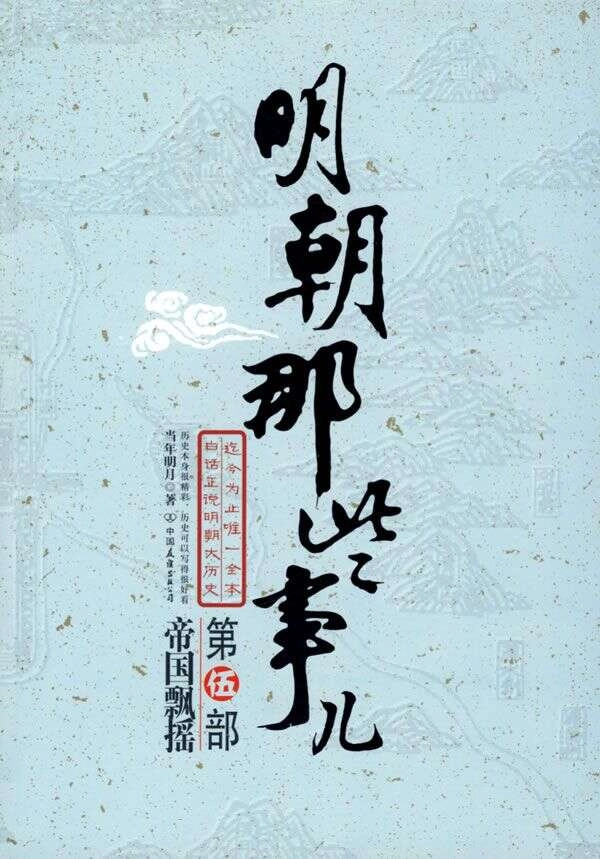 明朝那些事儿
迄今为止唯一全本
白话正说明朝大历史
历史本身很精彩,历史可以写得很好看
当年明月◎著
中国友谊出版公司
第伍部
帝国飘摇